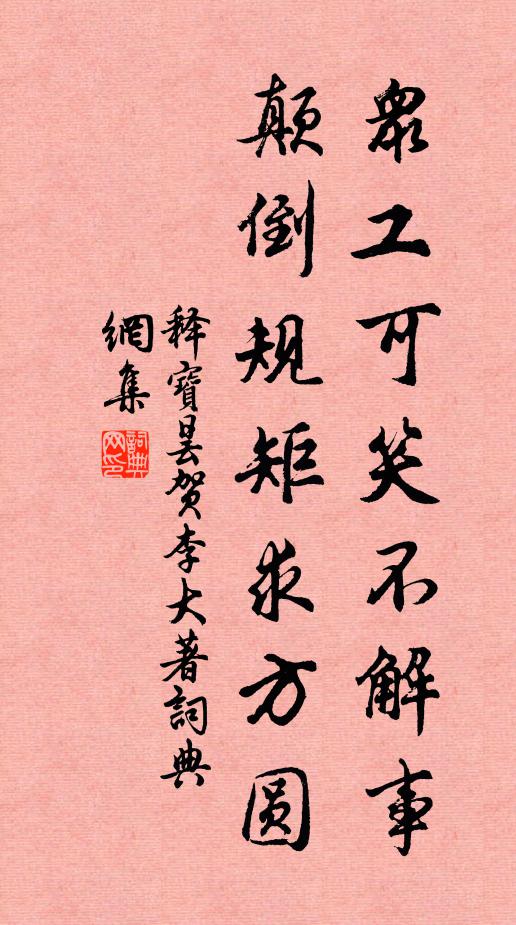 眾工可笑不解事
顛倒規矩求方圆
释寶曇贺李大著詞典
網集
詞典网印